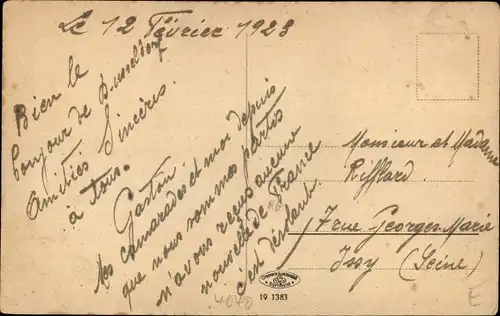 Le 12 Février 1923
Bien le
bonjour de Dusseldorf
Amitiés Sincères.
à tous.
Gaston
les camarades et moi depuis
que nous sommes partis
n'avons reçus aucune
nouvelle de France
c'est désolant.
Monsieur et Madame
Rifflard.
7 rue Georges Marie
Issy (Seine)
19 1383
4040
E